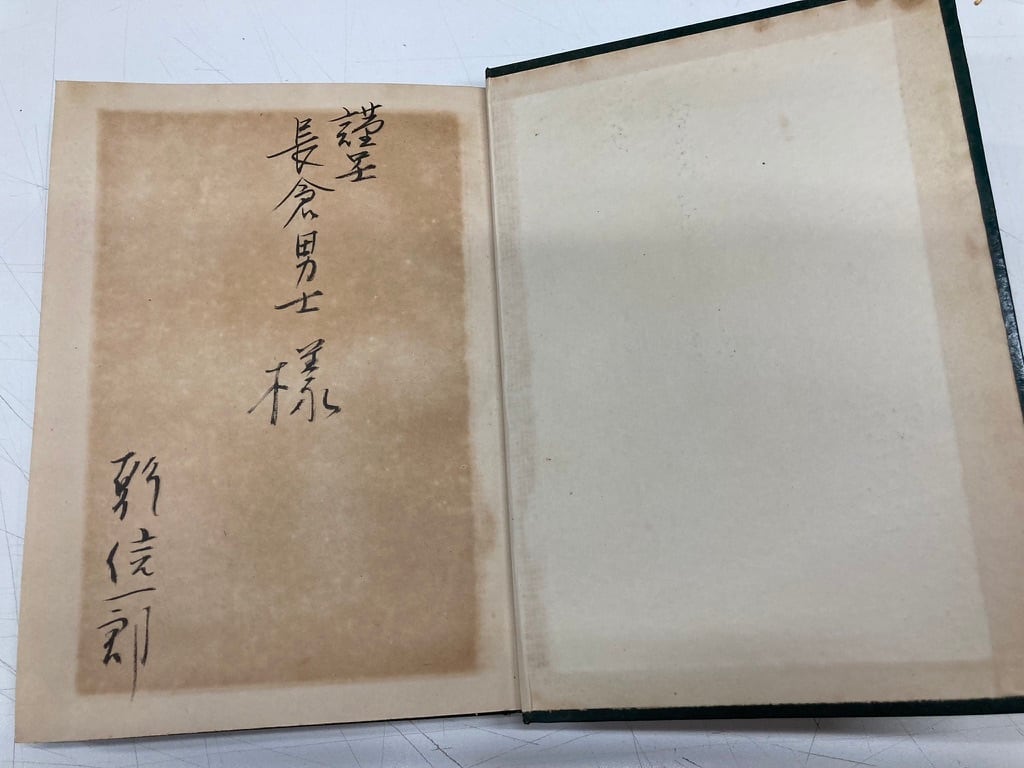 謹呈
長倉男士 様
乾信一郎